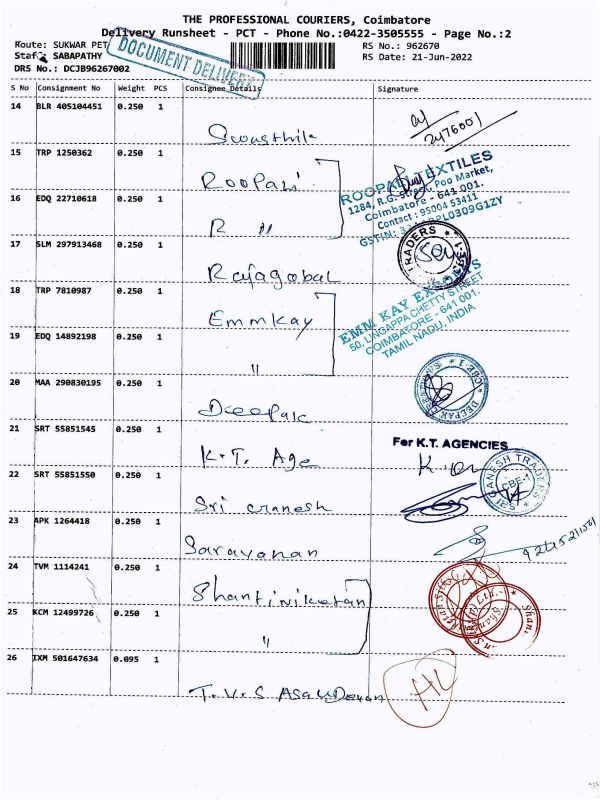 THE PROFESSIONAL COURIERS, Coimbatore
Delivery Runsheet - PCT - Phone No.:0422-3505555 - Page No.:2
Route: SUKWAR PET
Staff: SABAPATHY
DRS No.: DCJB96267002
DOCUMENT DELIVERY
RS No.: 962670
RS Date: 21-Jun-2022
S No Consignment No Weight PCS Consignee Details Signature
14 BLR 405104451 0.250 1
2476001
15 TRP 1250362 0.250 1 Roopari
ROOPARI TEXTILES
1284, R.G. Street, Poo Market,
Coimbatore - 641 001.
Contact : 95004 53411
16 EDQ 22710618 0.250 1 R "
17 SLM 297913468 0.250 1 Rajagobal
TRADERS
18 TRP 7810987 0.250 1 Emmkay
EMM KAY EXPORTS
50, LINGAPPA CHETTY STREET
COIMBATORE - 641 001.
TAMIL NADU, INDIA
19 EDQ 14892198 0.250 1 "
20 MAA 290830195 0.250 1 Deepak
21 SRT 55851545 0.250 1 K.T. Age
For K.T. AGENCIES
22 SRT 55851550 0.250 1 Sri Ganesh
SRI GANESH TRADERS
CBE-1
23 APK 1264418 0.250 1 Saravanan
24 TVM 1114241 0.250 1 Shantiniketan
25 KCM 12499726 0.250 1 "
26 IXM 501647634 0.095 1 T.V.S